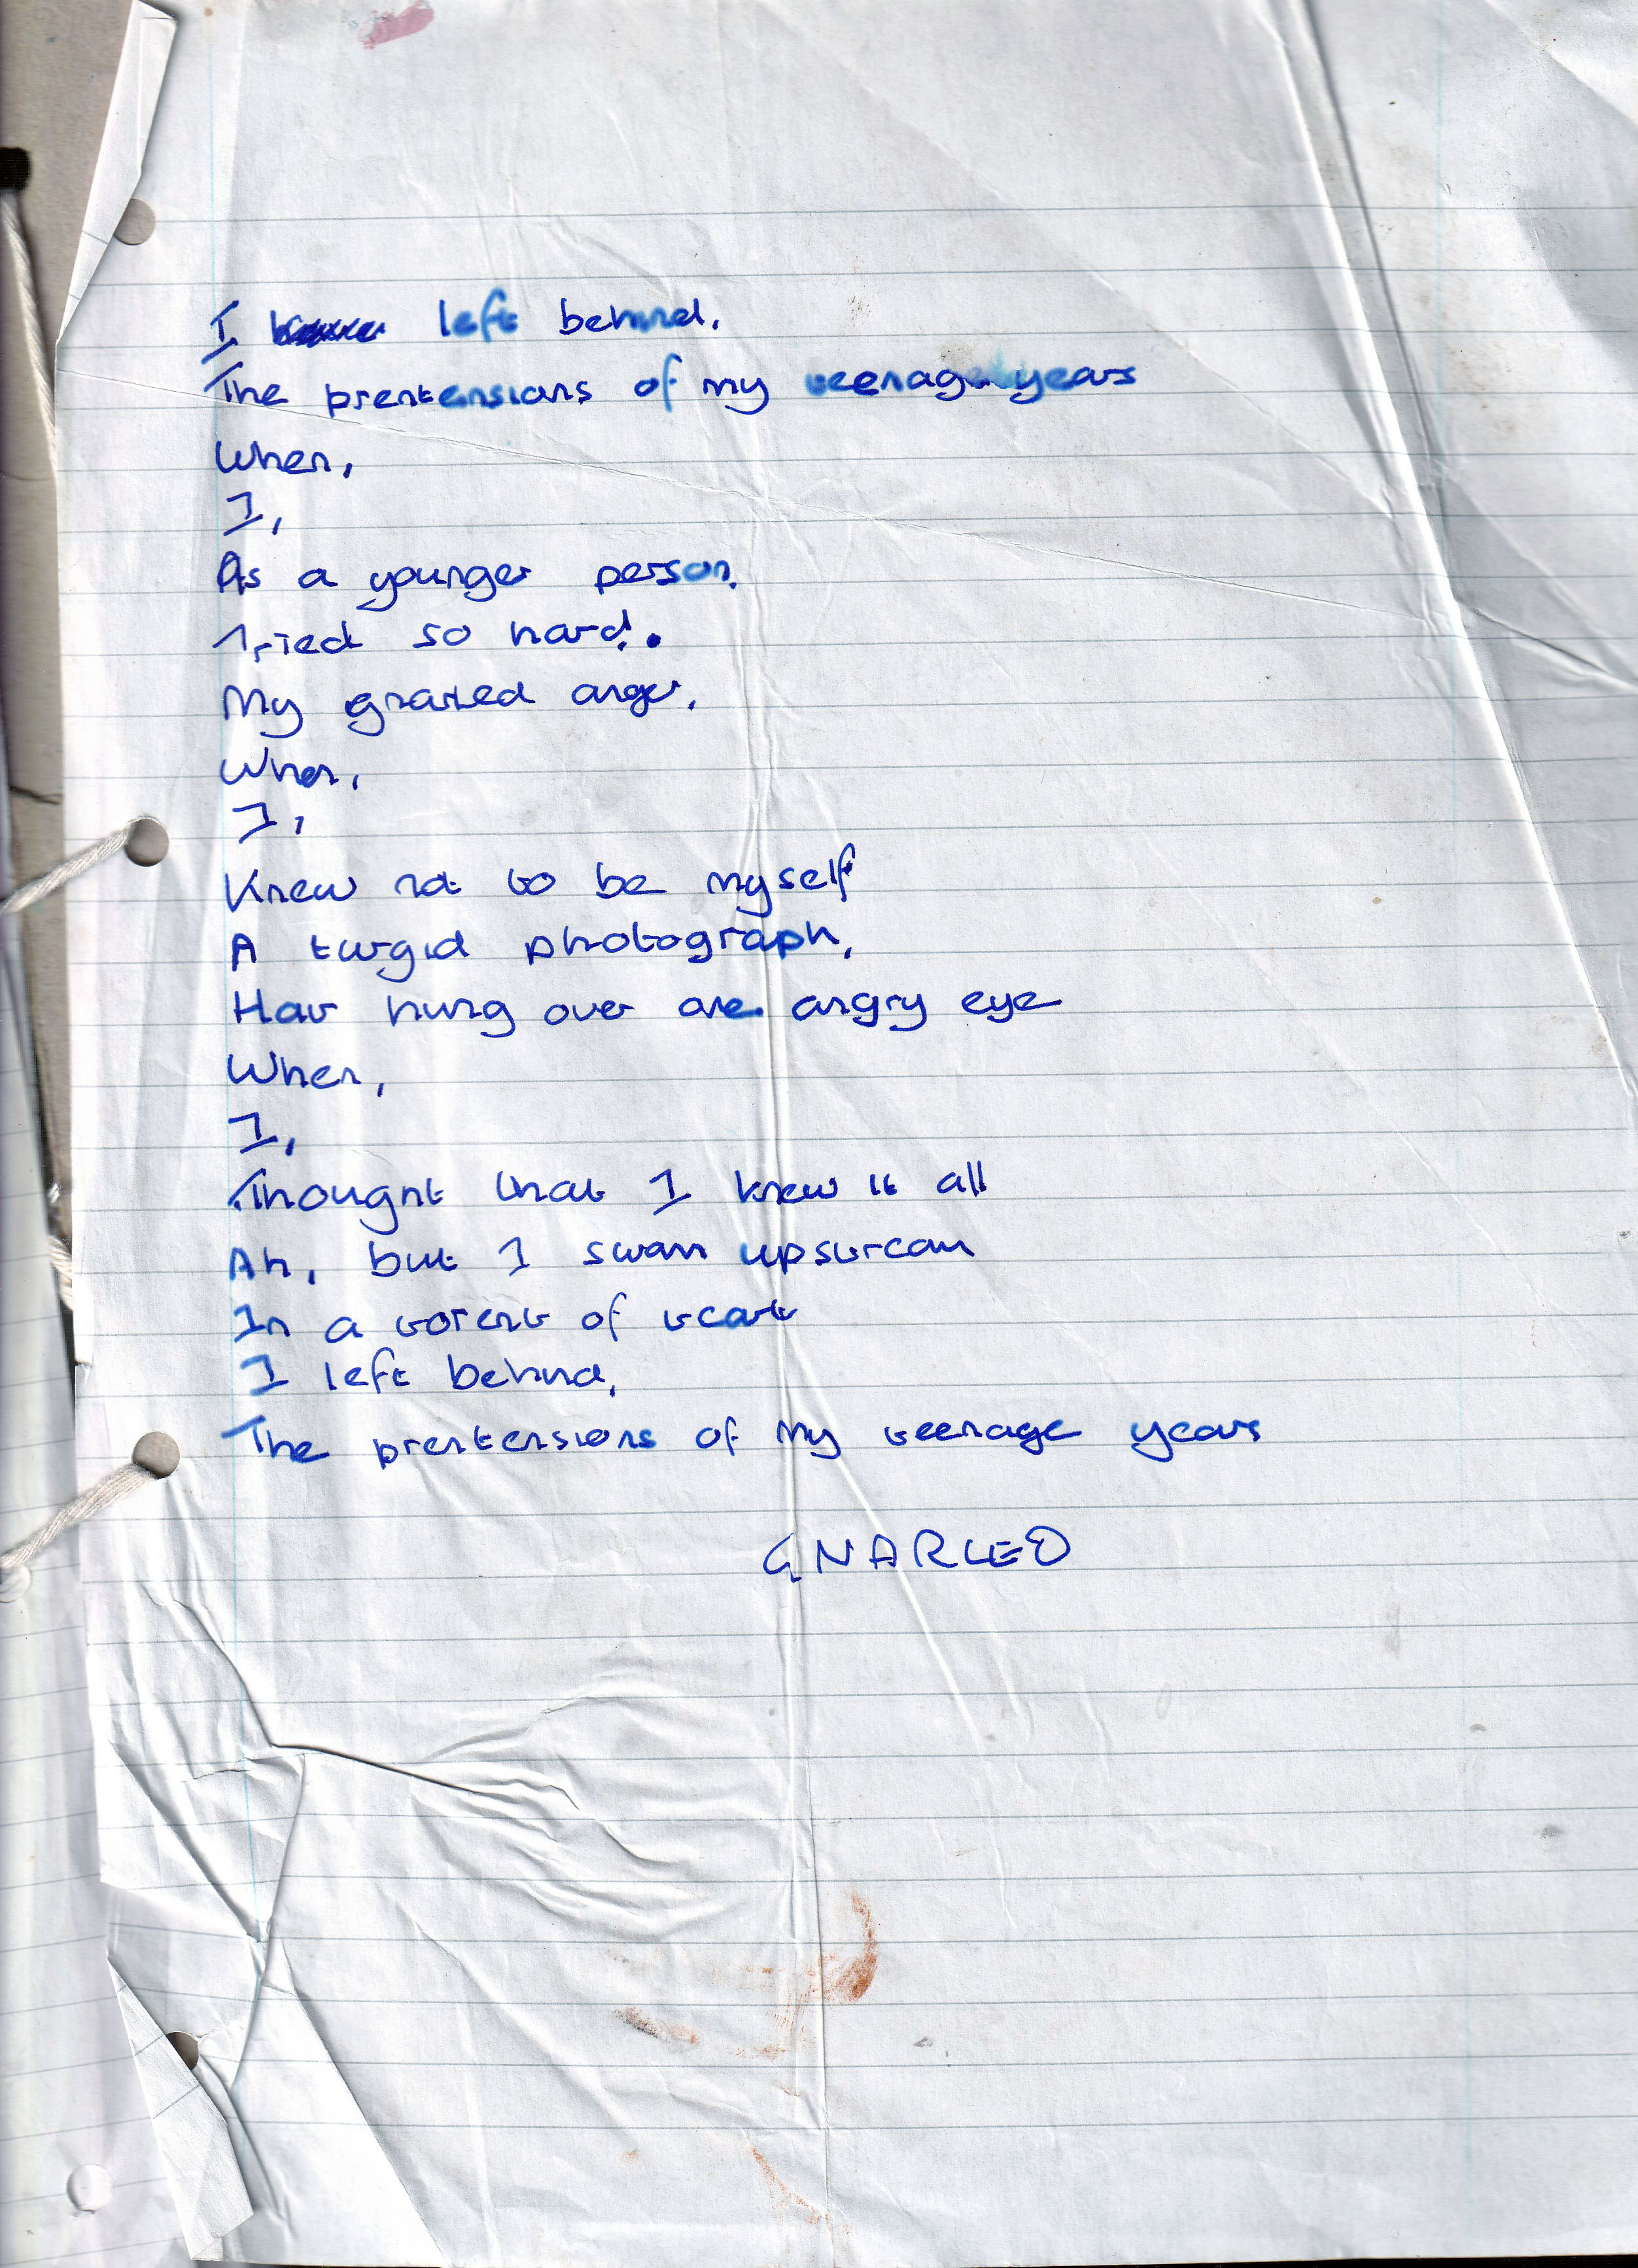 I left behind.
The prentensions of my teenage years
When,
I,
As a younger person,
Tried so hard.
My gnarled anger,
When,
I,
Knew not to be myself
A turgid photograph,
Hav hung over one angry eye
When,
I,
Thought that I knew it all
Ah, but I swam upstream
In a torent of
I left behind,
The prentensions of my teenage years
GNARLED